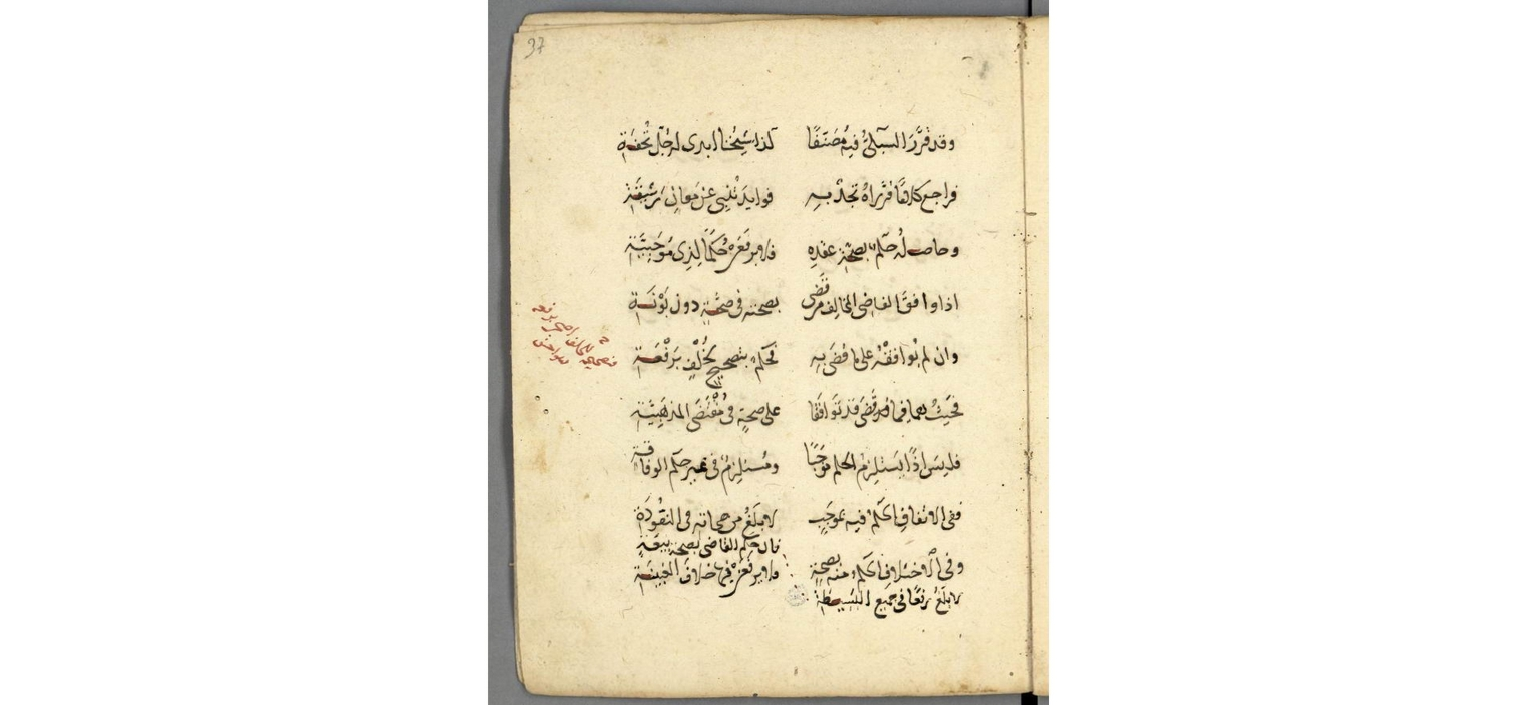 37
وقد قرَّرَ السبكيُّ فيه مُصَنَّفًا كذا شيخُنا ابدى لرجُل تُحفَة
فراجع كلامًا قرَّراهُ تجدْ به فوايد تُنبى عن مَعانٍ رَشيقَة
وحاصلهُ حكم بصحّة عقدِه فلا يرفعُهُ حُكمًا لذى مُوجَبيَّة
اذا وافقَ القاضى المخالف مَن قَضى بصحته فى صحَّةٍ دون
وان لم يُوافقْهُ على ما قضَى به فحكمٌ بتصحيح بخُلْفٍ برَفْعَة
فحَيثُ هما فيما قد قَضَى قد تَوافَقا على صحةٍ فى مُقْتَضَى المذهبيَّة
فليسَ اذًا يستلزمُ الحكم موجَبًا ومُستلزِمٌ فى غير حكم الوفاقة
ففى الاتفاقِ احكمْ فيه بموجَبٍ لابلَغُ من فى النقُودَة
وفى الاختلاف احكم منه بصحةٍ قال حكم القاضى بصحة بيعَةٍ
فلا يرفعُهُ خلافَ
لابلَغُ رفعًا فى جَميع البَسيطَة